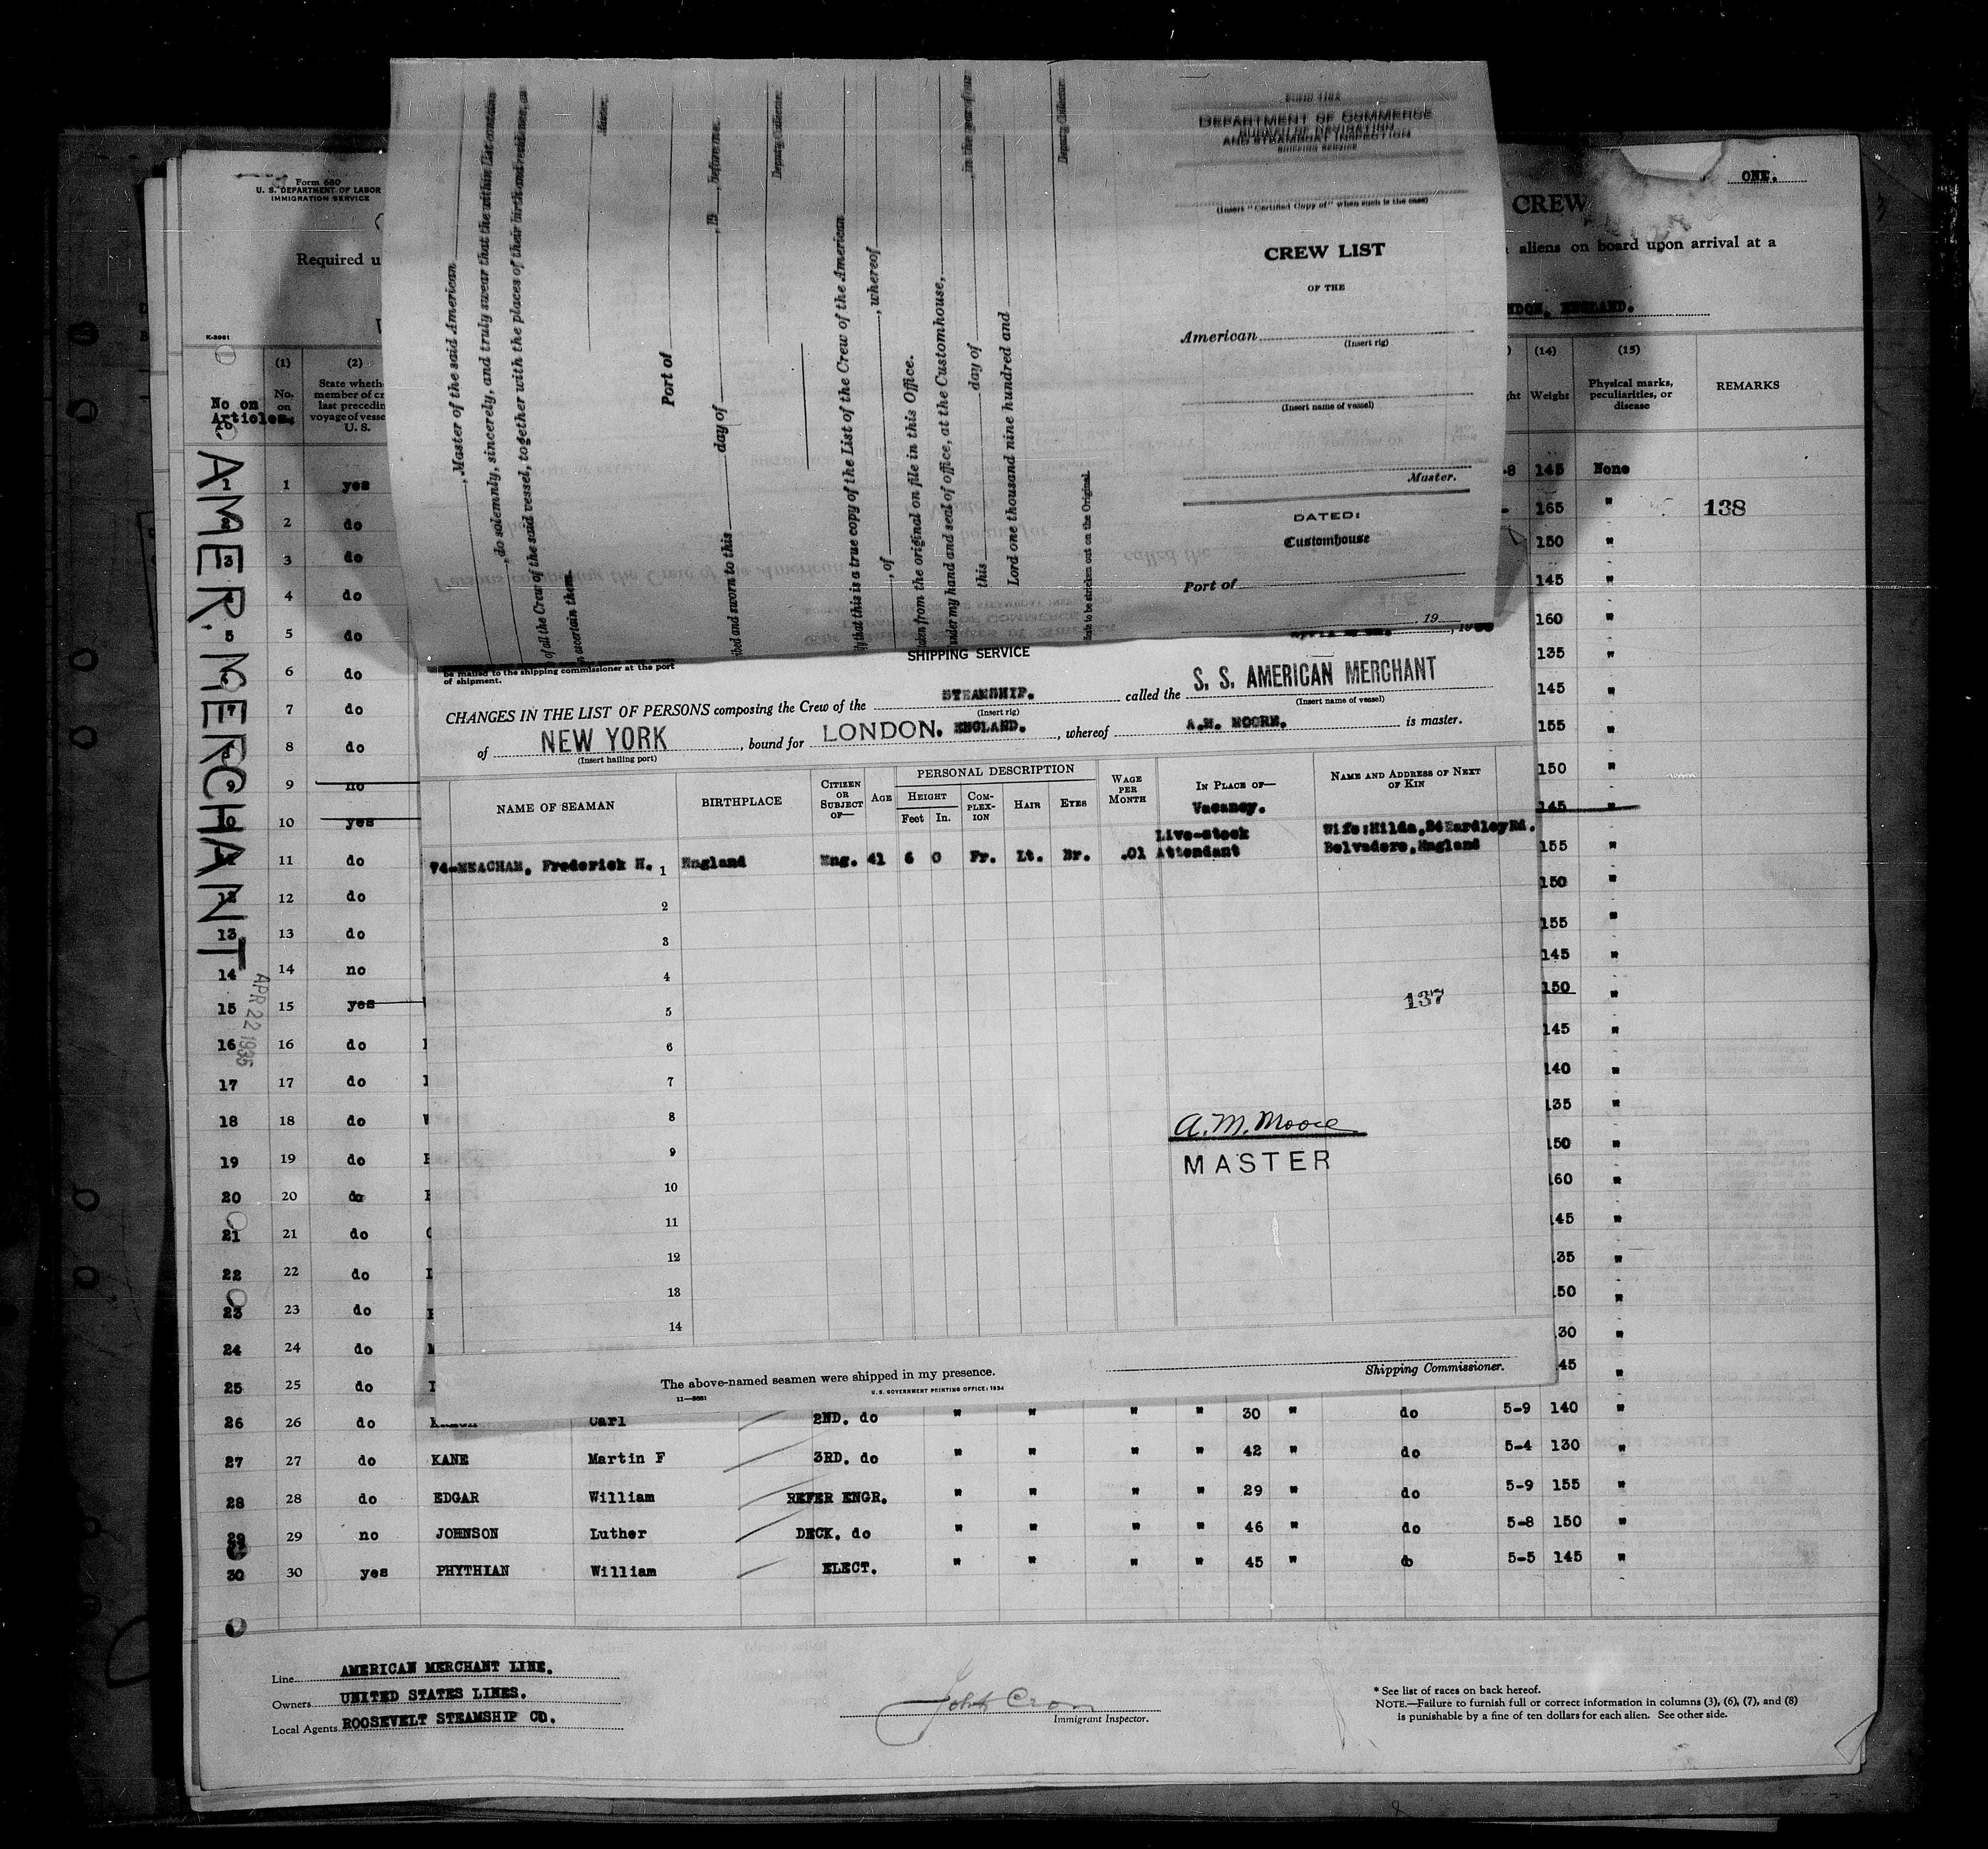 Form 680
U. S. DEPARTMENT OF LABOR
IMMIGRATION SERVICE
Required u
K-2661
ONE.
CREW
aliens on board upon arrival at a
NDON, ENGLAND.
No on Articles.
(1) No. on
(2) State wheth member of cr last precedin voyage of vesse U. S.
(14) Weight
(15) Physical marks, peculiarities, or disease
REMARKS
AMER. MERCHANT
APR 22 1935
, Master of the said American
, do solemnly, sincerely, and truly swear that the within List contains
of all the Crew of the said vessel, together with the places of their birth and residence, as
n ascertain them.
Master.
Port of
ibed and sworn to this day of , 19 , before me.
Deputy Collector.
ify that this is a true copy of the List of the Crew of the American
, of , whereof
taken from the original on file in this Office.
under my hand and seal of office, at the Customhouse,
this day of in the year of our
Lord one thousand nine hundred and
Deputy Collector.
icate to be stricken out on the Original.
Form 1102
DEPARTMENT OF COMMERCE
BUREAU OF NAVIGATION
AND STEAMBOAT INSPECTION
SHIPPING SERVICE
(Insert "Certified Copy of" when such is the case)
CREW LIST
OF THE
American
(Insert rig)
(Insert name of vessel)
Master.
DATED:
Customhouse
Port of
19
be mailed to the shipping commissioner at the port
of shipment.
SHIPPING SERVICE
CHANGES IN THE LIST OF PERSONS composing the Crew of the STEAMSHIP. called the S. S. AMERICAN MERCHANT
(Insert rig) (Insert name of vessel)
of NEW YORK , bound for LONDON. ENGLAND. , whereof A.M. MOORE. is master.
(Insert hailing port)
NAME OF SEAMAN BIRTHPLACE CITIZEN OR SUBJECT OF— AGE PERSONAL DESCRIPTION HEIGHT Feet In. COMPLEXION HAIR EYES WAGE PER MONTH IN PLACE OF— NAME AND ADDRESS OF NEXT OF KIN
Vacancy.
74-MEACHAM, Frederick H. 1 England Eng. 41 6 0 Fr. Lt. Br. .01 Live-stock Attendant Wife:Hilda, 24 Eardley Rd. Belvadere, England
2
3
4
5
6
7
8
9
10
11
12
13
14
137
A. M. Moore
MASTER
The above-named seamen were shipped in my presence.
Shipping Commissioner.
11—8681 U. S. GOVERNMENT PRINTING OFFICE: 1934
1 1 yes -8 145 None
2 2 do 165 " 138
3 3 do 150 "
4 4 do 145 "
5 5 do 160 "
6 do 135 "
7 do 145 "
8 do 155 "
9 no 150 "
10 10 yes 145 "
11 do 155 "
12 12 do 150 "
13 13 do 155 "
14 14 no 145 "
15 15 yes 150 "
16 16 do 145 "
17 17 do 140 "
18 18 do 135 "
19 19 do 150 "
20 20 do 160 "
21 21 do 145 "
22 22 do 135 "
23 23 do 150 "
24 24 do 130 "
25 25 do 145 "
26 26 do Carl 2ND. do " " " " 30 " do 5-9 140 "
27 27 do KANE Martin F 3RD. do " " " " 42 " do 5-4 130 "
28 28 do EDGAR William REFER ENGR. " " " " 29 " do 5-9 155 "
29 29 no JOHNSON Luther DECK. do " " " " 46 " do 5-8 150 "
30 30 yes PHYTHIAN William ELECT. " " " " 45 " do 5-5 145 "
Line AMERICAN MERCHANT LINE.
Owners UNITED STATES LINES.
Local Agents ROOSEVELT STEAMSHIP CO.
Immigrant Inspector.
* See list of races on back hereof.
NOTE.—Failure to furnish full or correct information in columns (3), (6), (7), and (8)
is punishable by a fine of ten dollars for each alien. See other side.